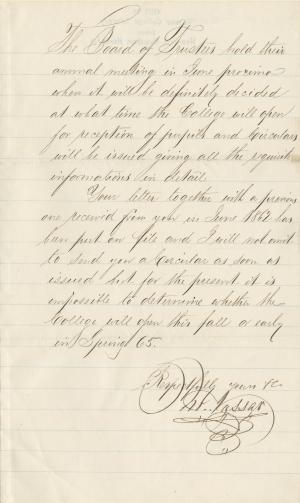 The Board of Trustees hold their
annual meeting in June proximo
when it will be definitely decided
at what time the College will open
for reception of pupils and Circulars
will be issued giving all the requisite
informations in detail
Your letter together with a previous
one received from you in June 1862 has
been put on file and I will not omit
to send you a Circular as soon as
issued but for the present it is
impossible to determine whether the
College will open this fall or early
in Spring 65.
Respectfully yours &c
M. Vassar